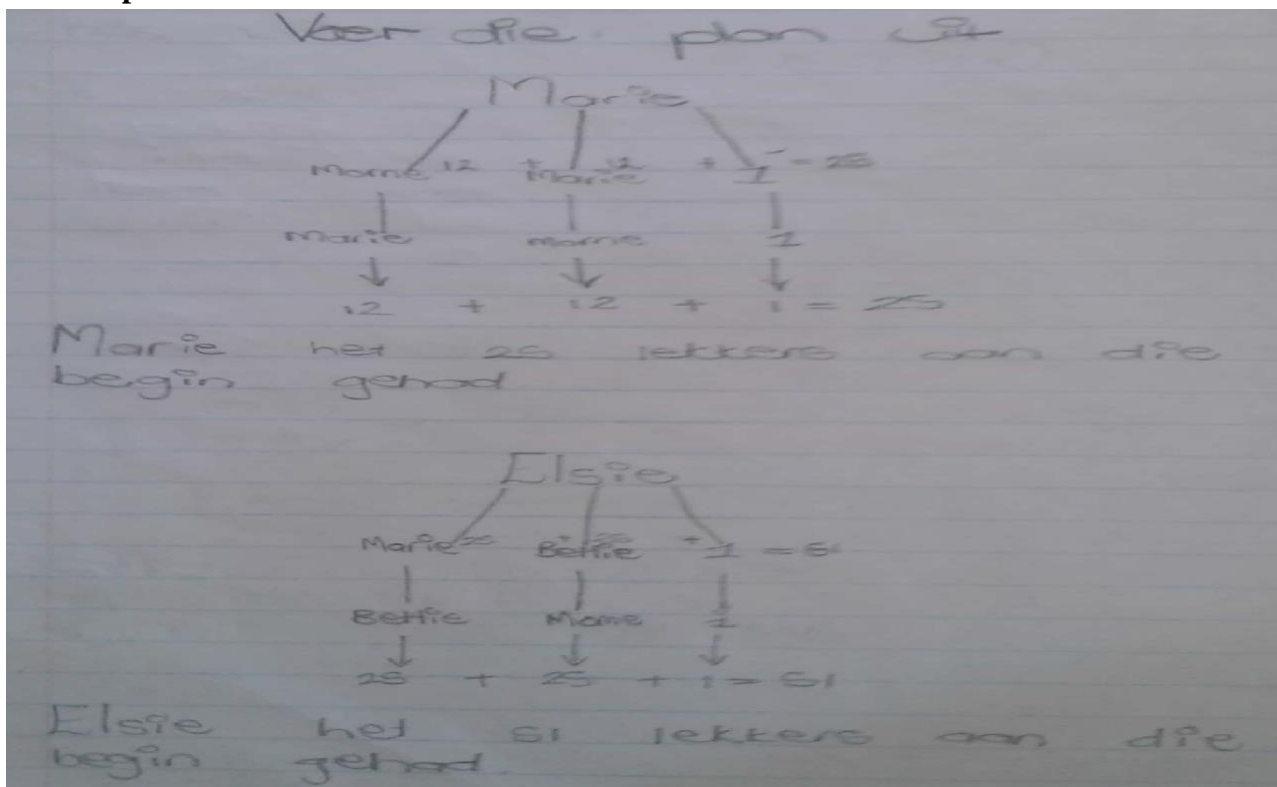 Voer die plan uit
Marie
Morné 12 + Marie 12 + 1 = 25
Marie morne 1
12 + 12 + 1 = 25
Marie het 25 lekkers aan die
begin gehad
Elsie
Marie 25 Bettie + 1 = 51
Bettie Morne 1
25 + 25 + 1 = 51
Elsie het 51 lekkers aan die
begin gehad